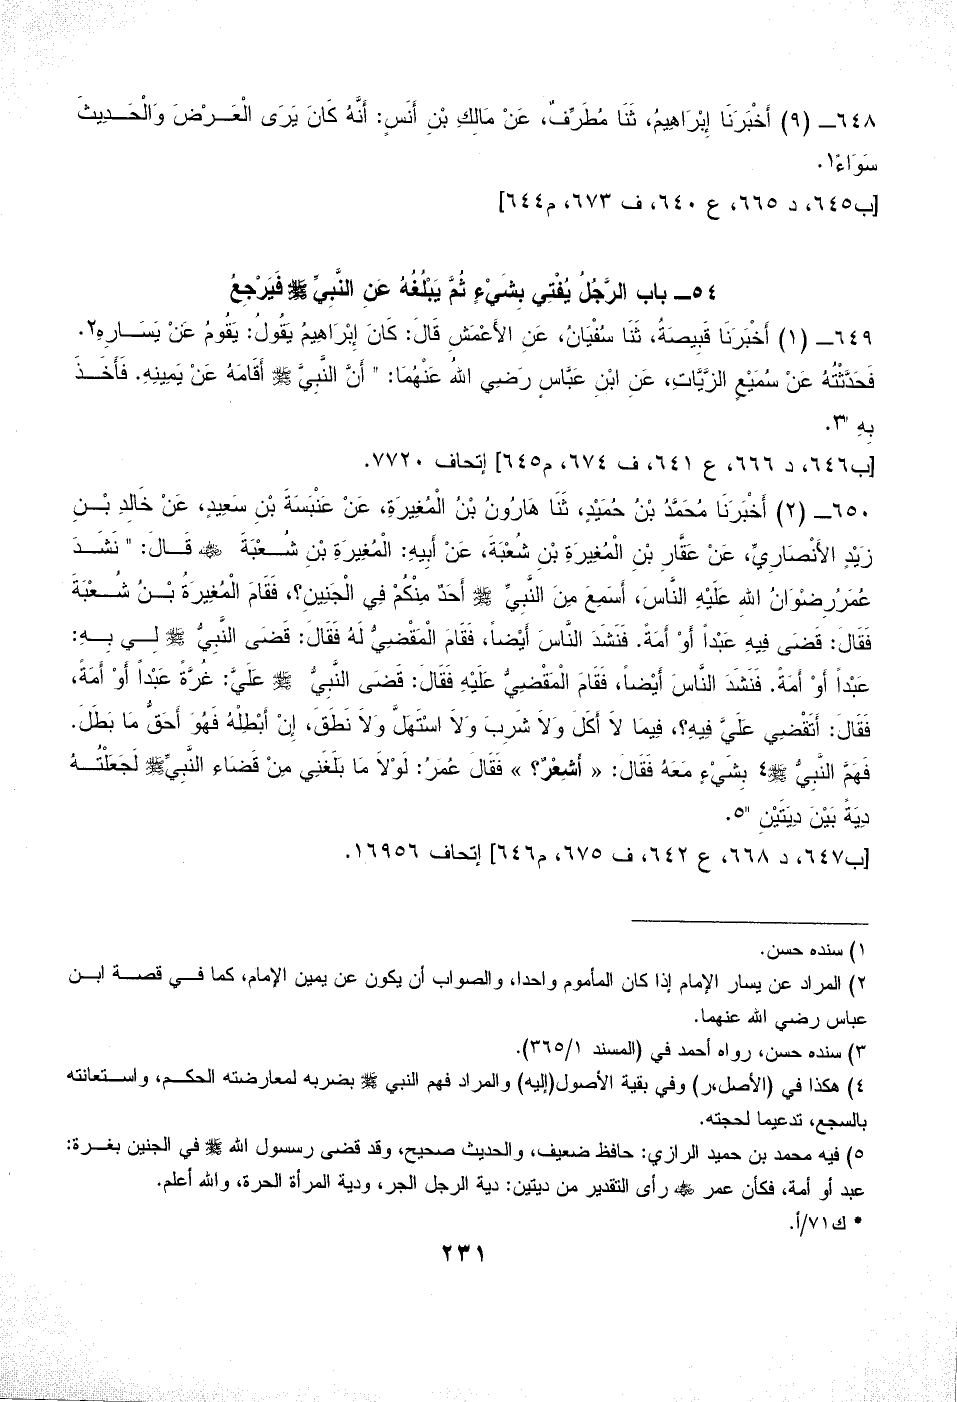 ٦٤٨ــ (٩) أَخْبَرَنَا إِبْرَاهِيمُ، ثَنَا مُطَرِّفٌ، عَنْ مَالِكِ بْنِ أَنَسٍ: أَنَّهُ كَانَ يَرَى الْعَرْضَ وَالْحَدِيثَ
سَوَاءً١.
[ب٦٤٥، د ٦٦٥، ع ٦٤٠، ف ٦٧٣، م٦٤٤]
٥٤ــ باب الرَّجُلُ يُفْتِي بِشَيْءٍ ثُمَّ يَبْلُغُهُ عَنِ النَّبِيِّ ﷺ فَيَرْجِعُ
٦٤٩ــ (١) أَخْبَرَنَا قَبِيصَةُ، ثَنَا سُفْيَانُ، عَنِ الأَعْمَشِ قَالَ: كَانَ إِبْرَاهِيمُ يَقُولُ: يَقُومُ عَنْ يَسَارِهِ٢.
فَحَدَّثْتُهُ عَنْ سُمَيْعٍ الزَّيَّاتِ، عَنِ ابْنِ عَبَّاسٍ رَضِي اللهُ عَنْهُمَا: " أَنَّ النَّبِيَّ ﷺ أَقَامَهُ عَنْ يَمِينِهِ. فَأَخَذَ
بِهِ "٣.
[ب٦٤٦، د ٦٦٦، ع ٦٤١، ف ٦٧٤، م٦٤٥] إتحاف ٧٧٢٠.
٦٥٠ــ (٢) أَخْبَرَنَا مُحَمَّدُ بْنُ حُمَيْدٍ، ثَنَا هَارُونُ بْنُ الْمُغِيرَةِ، عَنْ عَنْبَسَةَ بْنِ سَعِيدٍ، عَنْ خَالِدِ بْنِ
زَيْدٍ الأَنْصَارِيِّ، عَنْ عَقَّارِ بْنِ الْمُغِيرَةِ بْنِ شُعْبَةَ، عَنْ أَبِيهِ: الْمُغِيرَةِ بْنِ شُعْبَةَ ﷺ قَالَ: " نَشَدَ
عُمَرُ رِضْوَانُ الله عَلَيْهِ النَّاسَ، أَسَمِعَ مِنَ النَّبِيِّ ﷺ أَحَدٌ مِنْكُمْ فِي الْجَنِينِ؟، فَقَامَ الْمُغِيرَةُ بْنُ شُعْبَةَ
فَقَالَ: قَضَى فِيهِ عَبْداً أَوْ أَمَةً. فَنَشَدَ النَّاسَ أَيْضاً، فَقَامَ الْمَقْضِيُّ لَهُ فَقَالَ: قَضَى النَّبِيُّ ﷺ لِي بِهِ:
عَبْداً أَوْ أَمَةً. فَنَشَدَ النَّاسَ أَيْضاً، فَقَامَ الْمَقْضِيُّ عَلَيْهِ فَقَالَ: قَضَى النَّبِيُّ ﷺ عَلَيَّ: غُرَّةً عَبْداً أَوْ أَمَةً،
فَقَالَ: أَتَقْضِي عَلَيَّ فِيهِ؟، فِيمَا لاَ أَكَلَ وَلاَ شَرِبَ وَلاَ اسْتَهَلَّ وَلاَ نَطَقَ، إِنْ أَبْطَلَهُ فَهُوَ أَحَقُّ مَا بَطَلَ.
فَهَمَّ النَّبِيُّ ﷺ٤ بِشَيْءٍ مَعَهُ فَقَالَ: « أَشِعْرٌ؟ » فَقَالَ عُمَرُ: لَوْلاَ مَا بَلَغَنِي مِنْ قَضَاءِ النَّبِيِّ ﷺ لَجَعَلْتُهُ
دِيَةً بَيْنَ دِيَتَيْنِ "٥.
[ب٦٤٧، د ٦٦٨، ع ٦٤٢، ف ٦٧٥، م٦٤٦] إتحاف ١٦٩٥٦.
١) سنده حسن.
٢) المراد عن يسار الإمام إذا كان المأموم واحدا، والصواب أن يكون عن يمين الإمام، كما في قصة ابن
عباس رضي الله عنهما.
٣) سنده حسن، رواه أحمد في (المسند ٣٦٥/١).
٤) هكذا في (الأصل،ر) وفي بقية الأصول(إليه) والمراد فهم النبي ﷺ بضربه لمعارضته الحكم، واستعانته
بالسجع، تدعيما لحجته.
٥) فيه محمد بن حميد الرازي: حافظ ضعيف، والحديث صحيح، وقد قضى رسسول الله ﷺ في الجنين بغرة:
عبد أو أمة، فكأن عمر ﷺ رأى التقدير من ديتين: دية الرجل الجر، ودية المرأة الحرة، والله أعلم.
* ك٧١/أ.
٢٣١